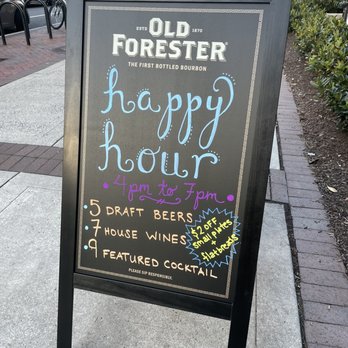 ESTD 1870
OLD
FORESTER
THE FIRST BOTTLED BOURBON
happy
hour
4pm to 7pm
5 DRAFT BEERS
7 HOUSE WINES
9 FEATURED COCKTAIL
$2 OFF
small plates
+
flatbreads
PLEASE SIP RESPONSIBLY.